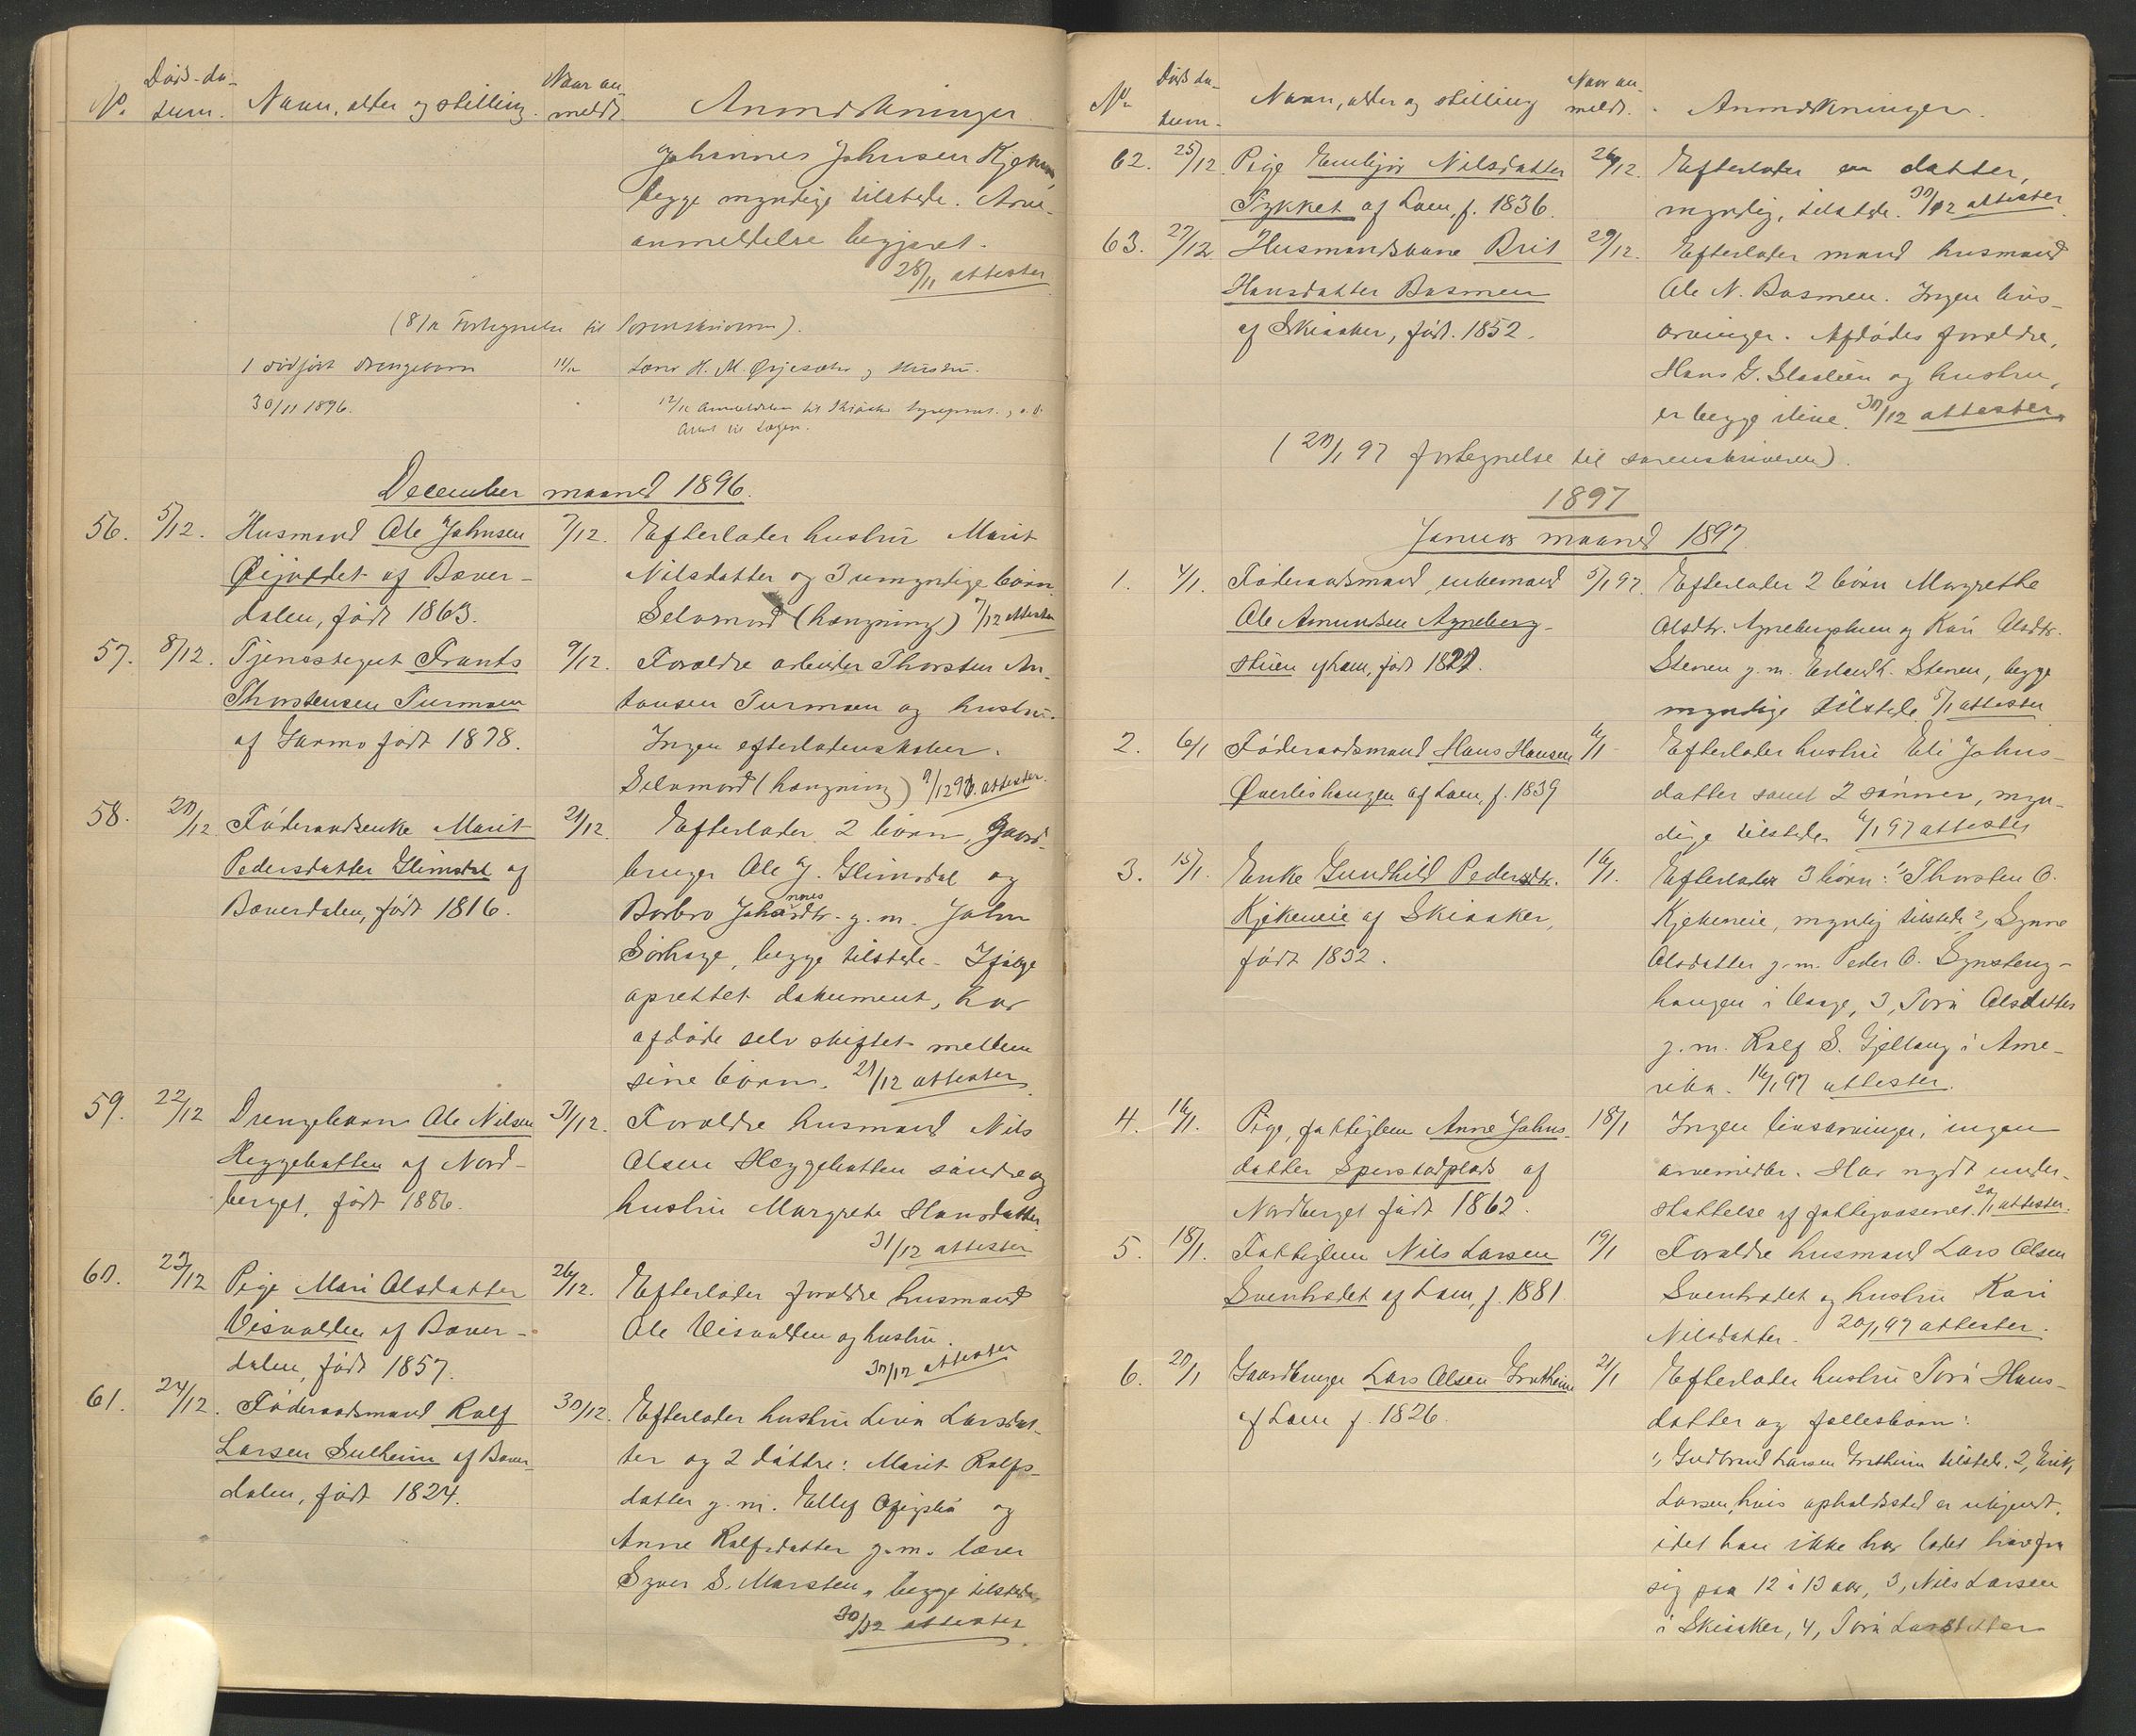 No. Døds-da- Navn, alder og stilling. Naar an- Anmærkninger
tum. meldt.
Johannes Johnsen
begge myndige tilstede. Arve-
anmeldelse begjæret.
28/11 attester
(8/12 Fortegnelse til Sorenskriveren).
1 dødfødt drengebarn 11/12
30/11 1896.
December maaned 1896.
56. 5/12. Husmand Ole Johnsen 7/12. Efterlader hustru Marit
af Bæver- Nilsdatter og 3 umyndige børn.
dalen, født 1863. Selvmord (hængning) 7/12 attester
57. 8/12. Tjenestegut Frants 9/12. Forældre arbeider Thorsten An-
Thorstensen Turmoen tonsen Turmoen og hustru.
af Garmo født 1878. Ingen efterladenskaber.
Selvmord (hængning) 9/12 96. attester.
58. 20/12 Føderaadsenke Marit 21/12. Efterlader 2 børn, gaard-
Pedersdatter Glimsdal af bruger Ole J. Glimsdal og
Bæverdalen, født 1816. Barbro Johannesdtr. g. m. John
Sørhage, begge tilstede. Ifølge
oprettet dokument, har
afdøde selv skiftet mellem
sine børn. 21/12 attester
59. 22/12 Drengebarn Ole Nilsen 31/12. Forældre husmand Nils
Heggebatten af Nord- Olsen Heggebatten søndre og
berget, født 1886. hustru Margrete Hansdatter
31/12 attester
60. 23/12 Pige Mari Olsdatter 26/12. Efterlader forældre husmand
Visvolden af Bæver- Ole Visvolden og hustru.
dalen, født 1857. 30/12 attester
61. 24/12. Føderaadsmand Rolf 30/12. Efterlader hustru Livia Larsdat-
Larsen Sulheim af Bæver- ter og 2 døttre: Marit Rolfs-
dalen, født 1824. datter g. m. Ellef og
Anne Rolfsdatter g. m. lærer
Syver S. Marsten, begge tilstede.
30/12 attester
No. Døds da- Navn, alder og stilling Naar an- Anmærkninger.
tum. meldt.
62. 25/12. Pige Nilsdatter 26/12. Efterlader en datter,
af Lom, f. 1836. myndig, tilstede. 30/12 attester
63. 27/12 Husmandskone Brit 29/12. Efterlader mand husmand
Hansdatter Bosmoen Ole N. Bosmoen. Ingen livs-
af Skiaaker, født 1852. arvinger. Afdødes forældre,
Hans G. og hustru,
er begge ilive. 30/12 attester
(20/1 97 fortegnelse til sorenskriveren).
1897
Januar maaned 1897
1. 4/1. Føderaadsmand, enkemand 5/1 97. Efterlader 2 børn Margrethe
Ole Amundsen Agneberg- Olsdtr. og Kari Olsdtr.
stuen af Lom, født Stenen g. m. Stenen, begge
myndige tilstede 5/1 attester
2. 6/1 Føderaadsmand Hans Hansen Efterlader hustru Eli Johns-
Øverlishaugen af Lom, f. 1839 datter samt 2 sønner, myn-
dige tilstede. 97 attester
3. 15/1. Enke Gundhild Pedersdtr. 16/1. Efterlader 3 børn: 1, Thorsten O.
Kjekeneie af Skiaaker, Kjekeneie, myndig tilstede 2, Synne
født 1832. Olsdatter g. m. Peder O.
haugen i Vaage, 3, Torø Olsdatter
g. m. Rolf S. i Ame-
rika. 16/1 97 attester.
4. 16/1. Pige, fattiglem Anne Johns- 18/1 Ingen livsarvinger, ingen
datter Sperstadplads af arvemidler. Har nydt under-
Nordberget født 1862. støttelse af fattigvæsenet. 20/1 attester.
5. 18/1. Fattiglem Nils Larsen 19/1 Forældre husmand Lars Olsen
af Lom, f. 1881 og hustru Kari
Nilsdatter. 20/1 97 attester.
6. 20/1 Gaardbruger Lars Olsen Grotheim 21/1 Efterlader hustru Torø Hans-
af Lom f. 1826. datter og fællesbørn:
1, Gudbrand Larsen Grotheim tilstede. 2, Erik
Larsen, hvis opholdssted er ukjendt,
idet han ikke har ladet høre fra
sig paa 12 à 13 aar, 3, Nils Larsen
i Skiaaker, 4, Torø Larsdatter